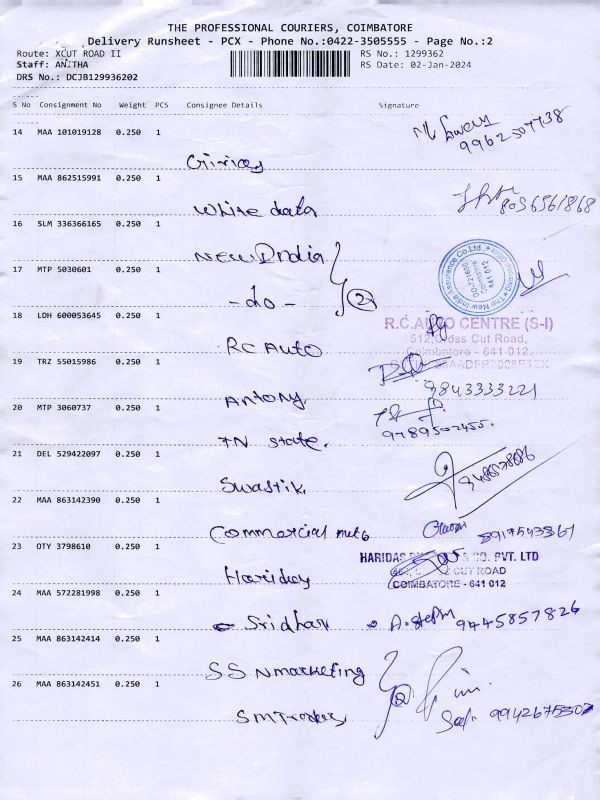 THE PROFESSIONAL COURIERS, COIMBATORE
Delivery Runsheet - PCX - Phone No.:0422-3505555 - Page No.:2
Route: XCUT ROAD II
RS No.: 1299362
Staff: ANITHA
RS Date: 02-Jan-2024
DRS No.: DCJB129936202
S No Consignment No Weight PCS Consignee Details Signature
14 MAA 101019128 0.250 1
9962507738
15 MAA 862515991 0.250 1
White data
8056561868
16 SLM 336366165 0.250 1
New India
The New India Assurance Co.Ltd.,
17 MTP 5030601 0.250 1
- do - 2
18 LDH 600053645 0.250 1
R.C.AUTO CENTRE (S-I)
512, Cross Cut Road,
Coimbatore - 641 012.
RC Auto
19 TRZ 55015986 0.250 1
9843333221
Antony.
20 MTP 3060737 0.250 1
9789502455.
TN state.
21 DEL 529422097 0.250 1
Swastik
22 MAA 863142390 0.250 1
Commercial
8917543367
23 OTY 3798610 0.250 1
HARIDAS & CO. PVT. LTD
CUT ROAD
COIMBATORE - 641 012
Haridas
24 MAA 572281998 0.250 1
Sridhar
9445857826
25 MAA 863142414 0.250 1
SS Nmarketing
26 MAA 863142451 0.250 1
2
9942675307
SM Traders